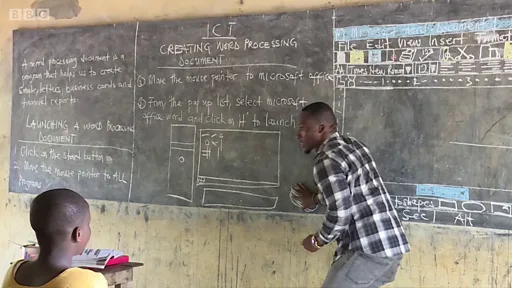 BBC
A word processing document is a
program that help us to create
letters, business cards and
financial reports.
LAUNCHING A WORD PROCESSING
DOCUMENT
1. Click on the start button
2. Move the mouse pointer to ALL
programs
ICT
CREATING WORD PROCESSING
DOCUMENT
Move the mouse pointer to microsoft office
From the pop up list, select microsoft
office word and click on it to launch
Microsoft Word Document
File Edit View Insert Format
Times New Roman 12
shapes
Sec At